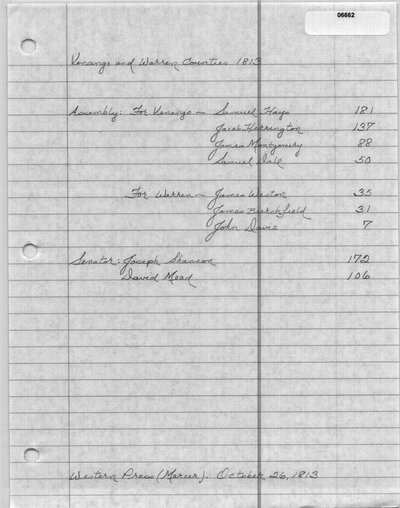 06662
Venango and Warren Counties 1813
Assembly: For Venango — Samuel Hays 181
Jacob Herrington 137
James Montgomery 88
Samuel Dale 50
For Warren — James Weston 35
James Burchfield 31
John Davis 7
Senator: Joseph Shannon 172
David Mead 106
Western Press (Mercer). October 26, 1813